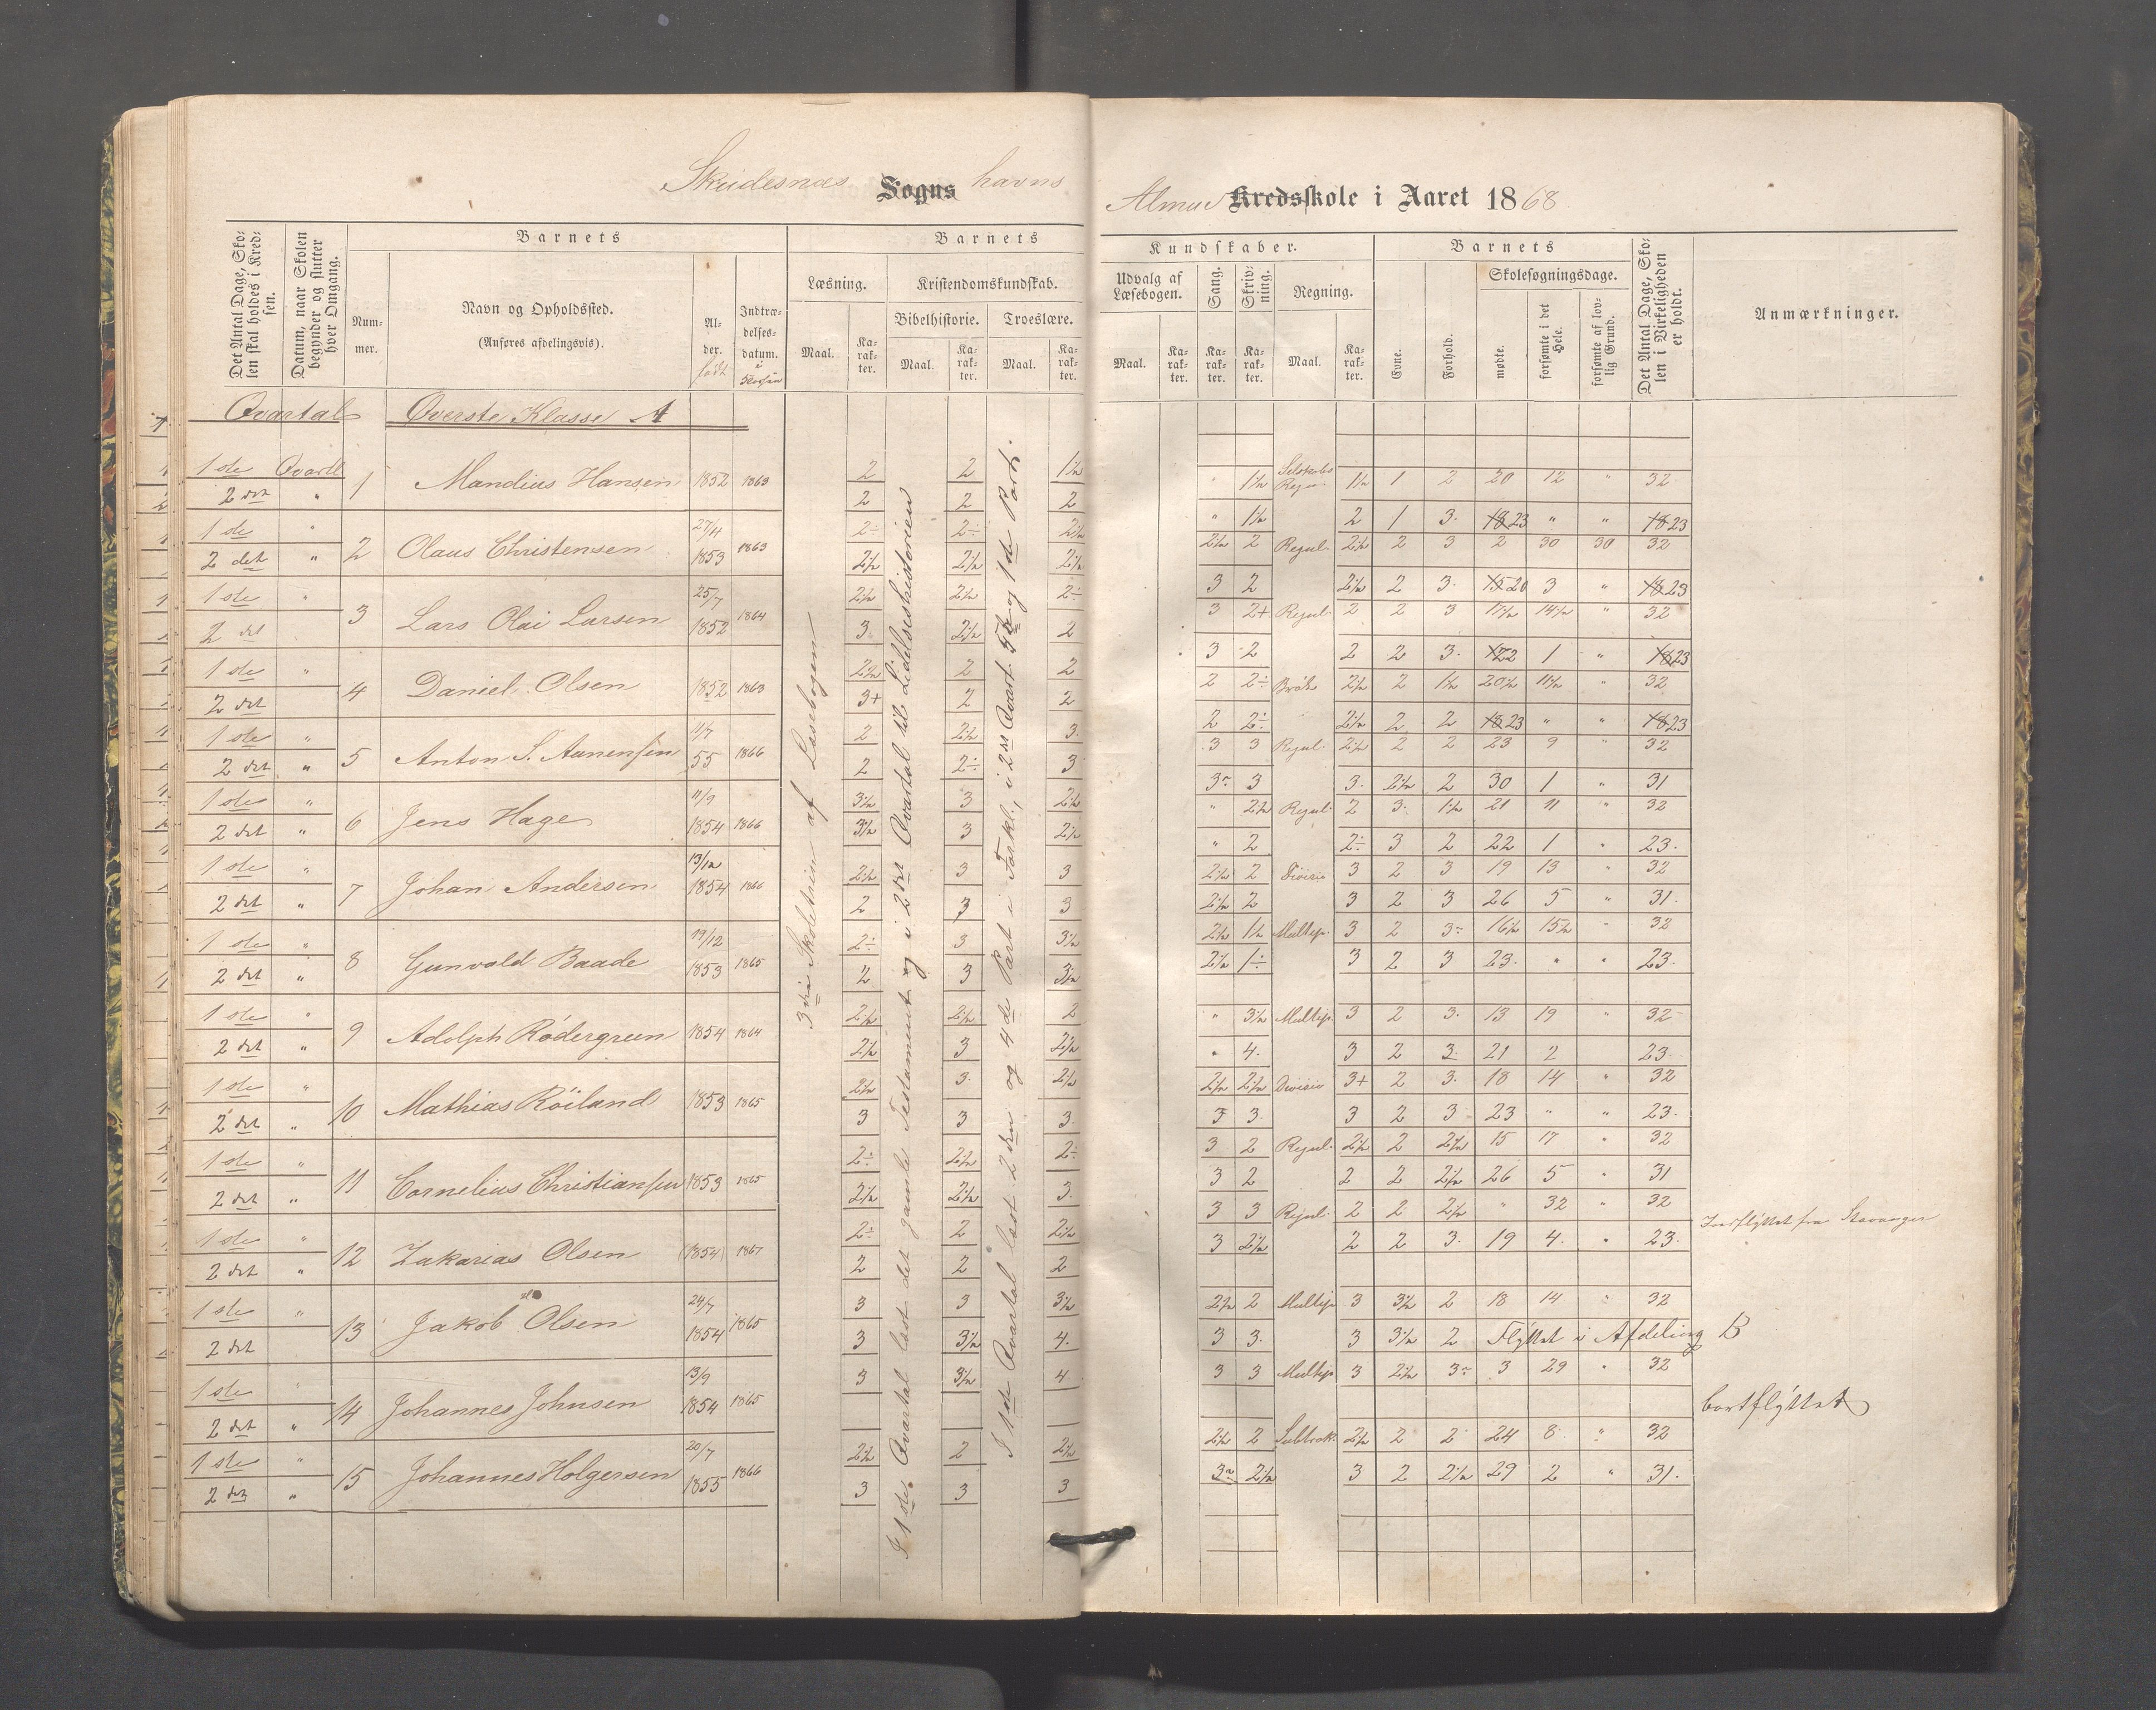 Skudesnæs Sogns havns
Almue Kredsskole i Aaret 1868
Det Antal Dage, Skolen skal holdes i Kredsen.
Datum, naar Skolen begynder og slutter hver Omgang.
Barnets
Nummer.
Navn og Opholdssted.
(Anføres afdelingsvis).
Alder. født
Indtrædelsesdatum. i Skolen
Barnets
Læsning.
Maal.
Karakter.
Kristendomskundskab.
Bibelhistorie.
Maal.
Karakter.
Troeslære.
Maal.
Karakter.
Kundskaber.
Udvalg af Læsebogen.
Maal.
Karakter.
Sang.
Karakter.
Skrivning.
Karakter.
Regning.
Maal.
Karakter.
Barnets
Evne.
Forhold.
Skolesøgningsdage.
mødte.
forsømte i det Hele.
forsømte af lovlig Grund.
Det Antal Dage, Skolen i Virkeligheden er holdt.
Anmærkninger.
Qvartal Øverste Klasse A
3die Skoletrin af Læsebogen
I 1ste Qvartal læst det gamle Testament og i 2det Qvartal til Lidelseshistorien
I 1ste Qvartal læst 2den og 4de Part i Forkl., i 2det Qvart. 5te og 1ste Part.
1ste Qvartl 1 Mandius Hansen 1852 1863 2 2 1½ " 1½ Selskabs Regn. 1½ 1 2 20 12 " 32
2det " 2 2 2 " 1½ 2 1 3. 18 23 " " 18 23
1ste " 2 Olaus Christensen 27/4 1853 1863 2÷ 2÷ 2½ 2½ 2 Regul. 2½ 2 3 2 30 30 32
2det " 2½ 2½ 2½ 3 2 2½ 2 3. 15 20 3 " 18 23
1ste " 3 Lars Olai Larsen 25/7 1852 1864 2½ 2½ 2÷ 3 2+ Regul. 2 2 3 17½ 14½ " 32
2det 3 2½ 2 3 2 2 2 3. 17 22 1 " 18 23
1ste " 4 Daniel Olsen 1852 1863 2½ 2 2 2 2÷ Brøk 2½ 2 1½ 20½ 11½ " 32
2det 3+ 2 2 2 2÷ 2½ 2 2 18 23 " " 18 23
1ste " 5 Anton S. Aanensen 11/7 55 1866 2 2½ 3. 3 3 Regul. 2½ 2 2 23 9 " 32
2det " 2 2÷ 3 3 3 3. 2½ 2 30 1 " 31
1ste " 6 Jens Hage 11/9 1854 1866 3½ 3 2½ " 2½ Regul. 2 3. 1½ 21 11 " 32
2det " 3½ 3 2½ " 2 2÷ 3 2 22 1 " 23.
1ste " 7 Johan Andersen 13/12 1854 1866 2½ 3 3 2½ 2 Divisio 3 2 3 19 13 " 32
2det " 2 3 3 2½ 2 3 2 3 26 5 " 31.
1ste " 8 Gunvald Baade 19/12 1853 1865 2÷ 3 3½ 2½ 1½ Multip. 3 2 3 16½ 15½ " 32
2det " 2 3 3½ 2½ 1÷ 3 2 3 23. " " 23.
1ste " 9 Adolph Rødergreen 1854 1864 2½ 2½ 2 " 3½ Multip. 3 2 3. 13 19 " 32
2det " 2½ 3 2½ " 4. 3 2 3 21 2 23.
1ste " 10 Mathias Röiland 1853 1865 2½ 3. 2½ 2½ 2½ Divisio 3+ 2 3. 18 14 " 32
2det " 3 3 3. 3 3. 3 2 3 23 " " 23.
1ste " 11 Cornelius Christiansen 1853 1865 2÷ 2½ 2÷ 3 2 Regul. 2½ 2 2½ 15 17 " 32
2det " 2½ 2½ 3. 3 2 2 2 2½ 26 5 " 31
1ste " 12 Zakarias Olsen (1854) 1867 2÷ 2 2½ 3 3 Regul. 2 2 2½ " 32 " 32 Indflyttet fra Stavanger
2det " 2 2 2 3 2½ 2 2 3. 19 4. " 23.
1ste " 13 Jakob Olsen 24/7 1854 1865 3 3 3½ 2½ 2 Multip 3 3½ 2 18 14 " 32
2det 3 3½ 4. 3 3. 3 3½ 2 Flyttet i Afdeling B
1ste " 14 Johannes Johnsen 13/9 1854 1865 3 3½ 4 3 3 Multip 3 2½ 3 3 29 " 32
2det " bortflyttet
1ste " 15 Johannes Holgersen 20/7 1855 1866 2½ 2 2½ 2½ 2 Subtrak. 2½ 2 2 24 8 " 32
2det " 3 3 3 3 2½ 3 2 2½ 29 2 " 31.